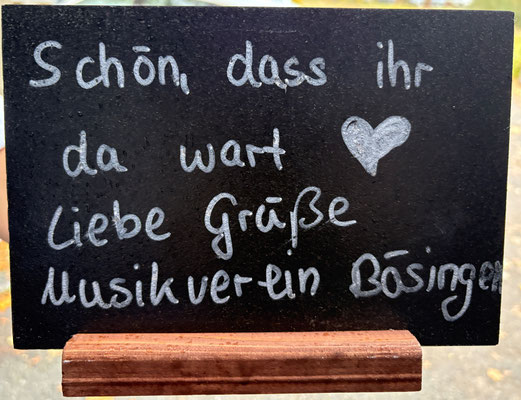 Schön, dass ihr
da wart ♥
Liebe Grüße
Musikverein Bösingen